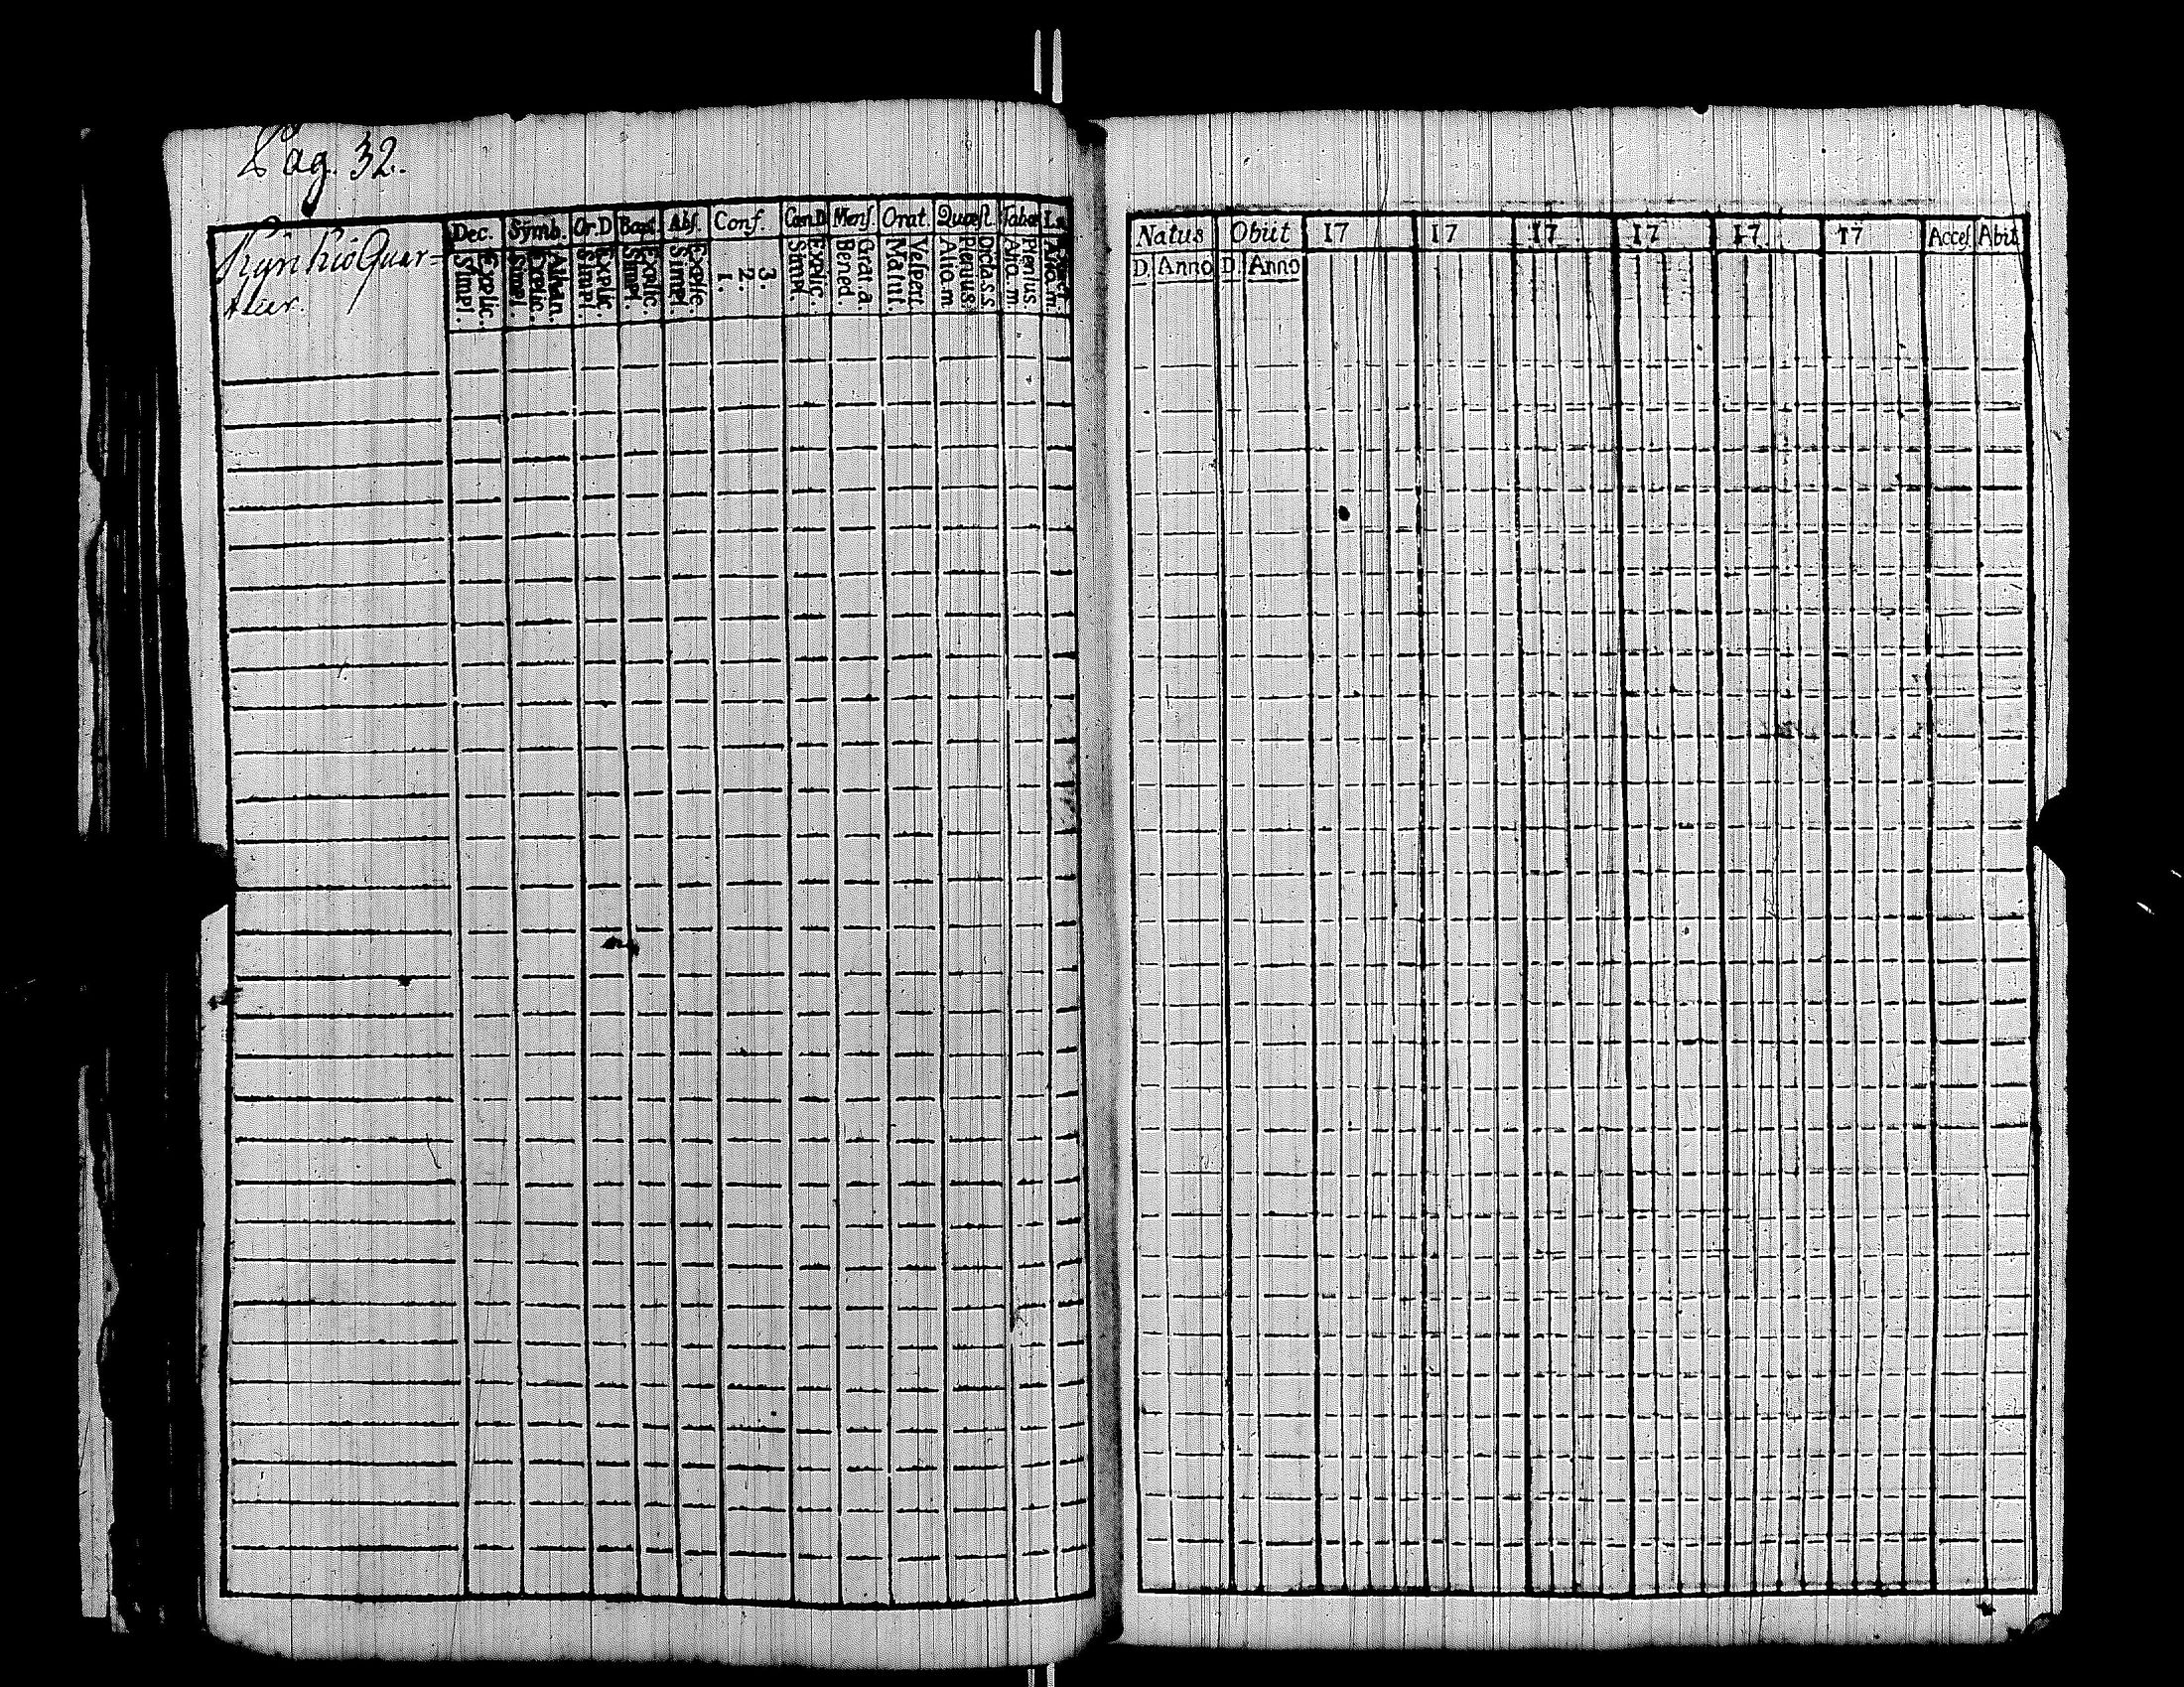 Pag. 32.
Kyrikiö Quar-
teer.
Dec. Symb. Or.D Bapt. Abs. Conf. Cœn.D Mens. Orat. Quæst. Tabæ
Simpl. Explic. Simpl. Explic. Athan. Simpl. Explic. Simpl. Explic. Simpl. Explic. 1. 2. 3. Simpl. Explic. Bened. Grat.a. Matut. Vespert. Alio.m Plenius. Dictass. Alio.m Plenius.
Natus Obiit 17 17 17 17 17 17 Acces Abit
D. Anno D. Anno